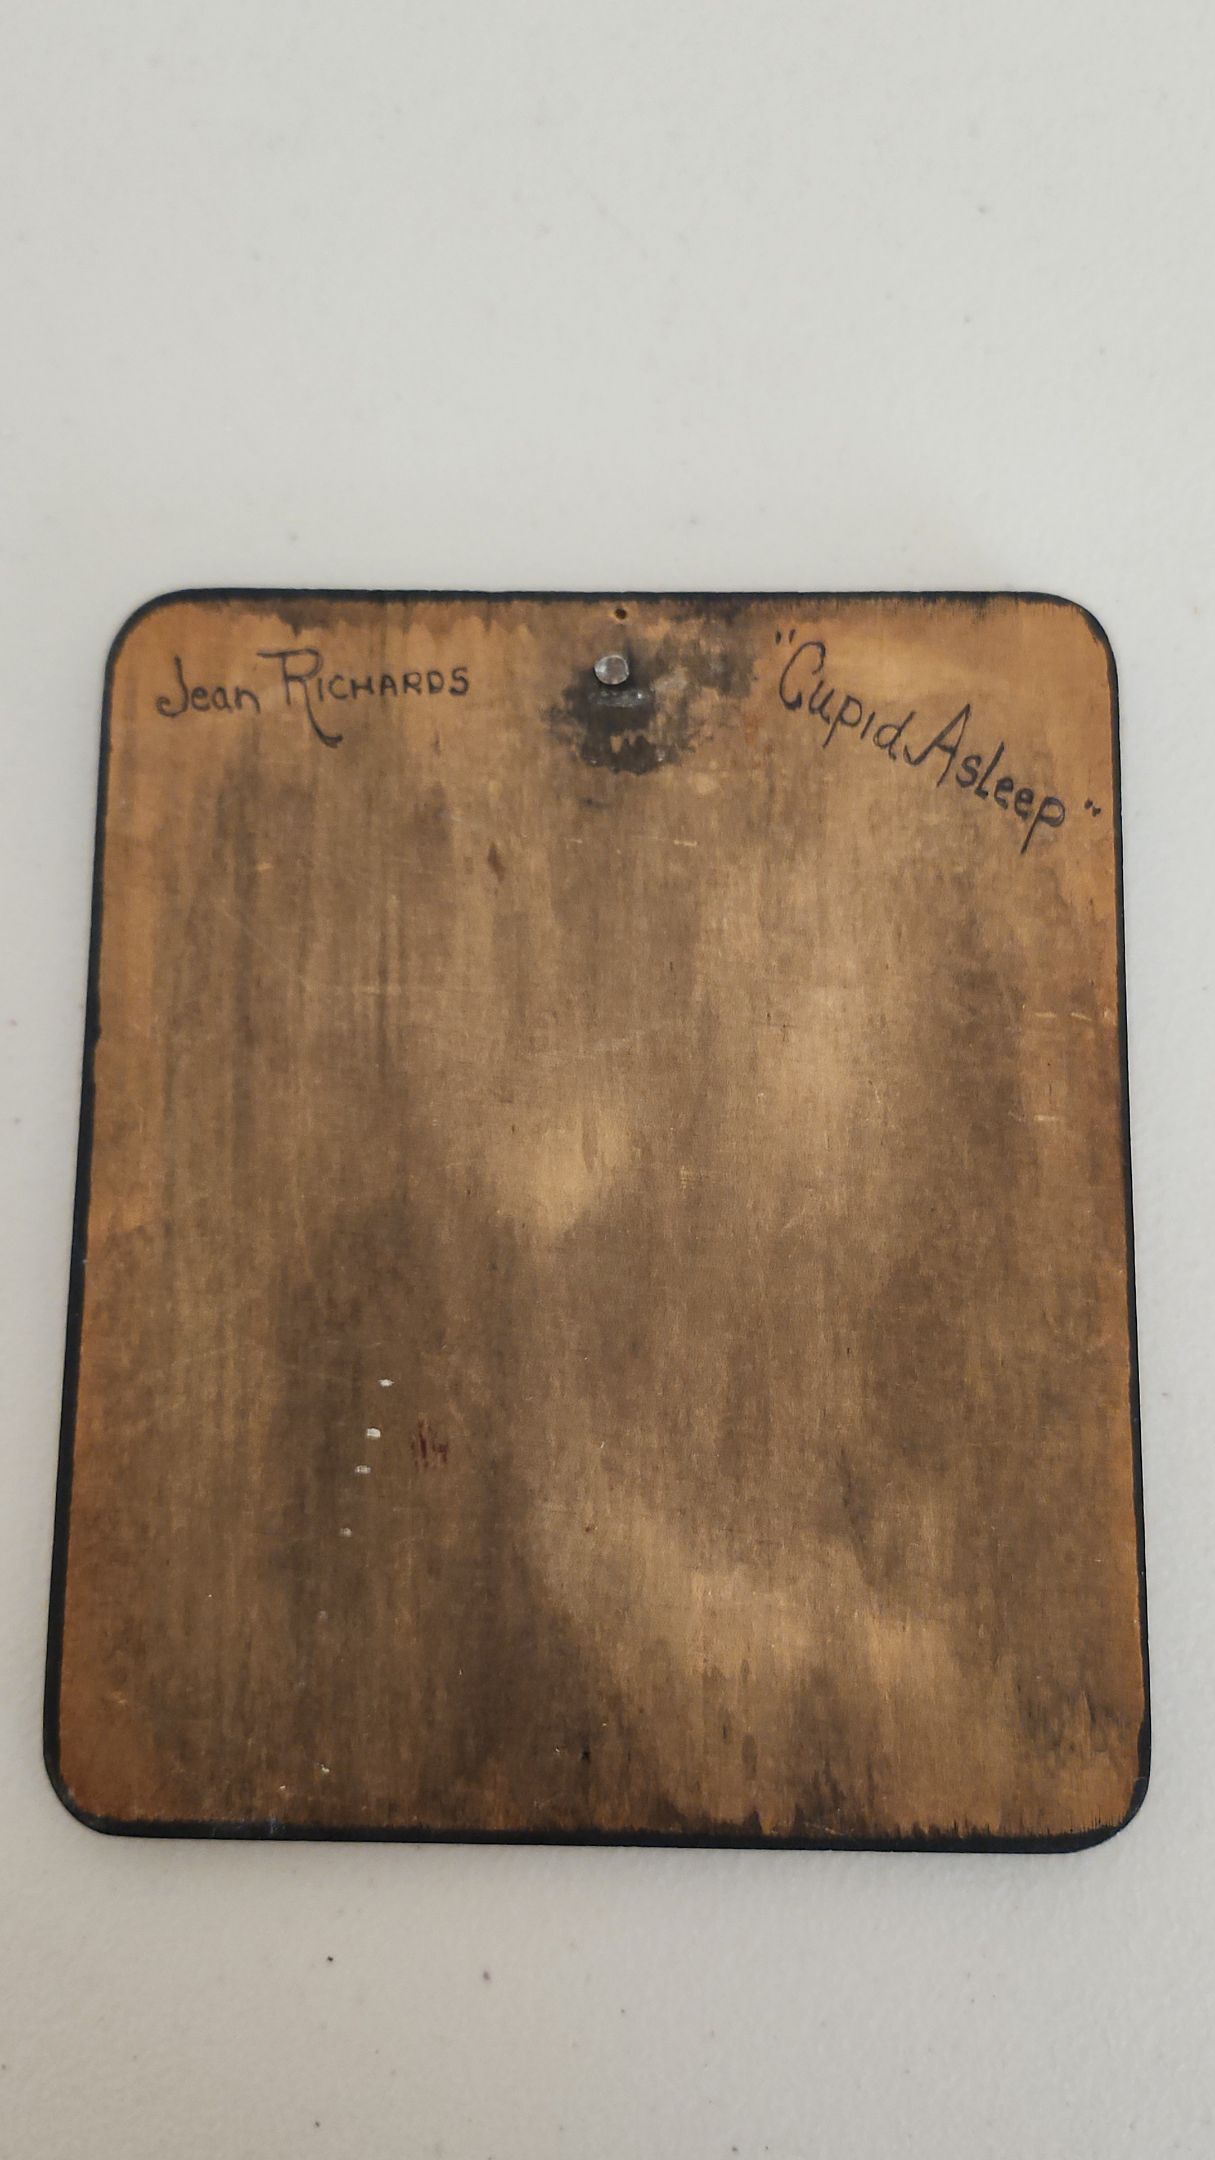 Jean RICHARDS
"Cupid Asleep"